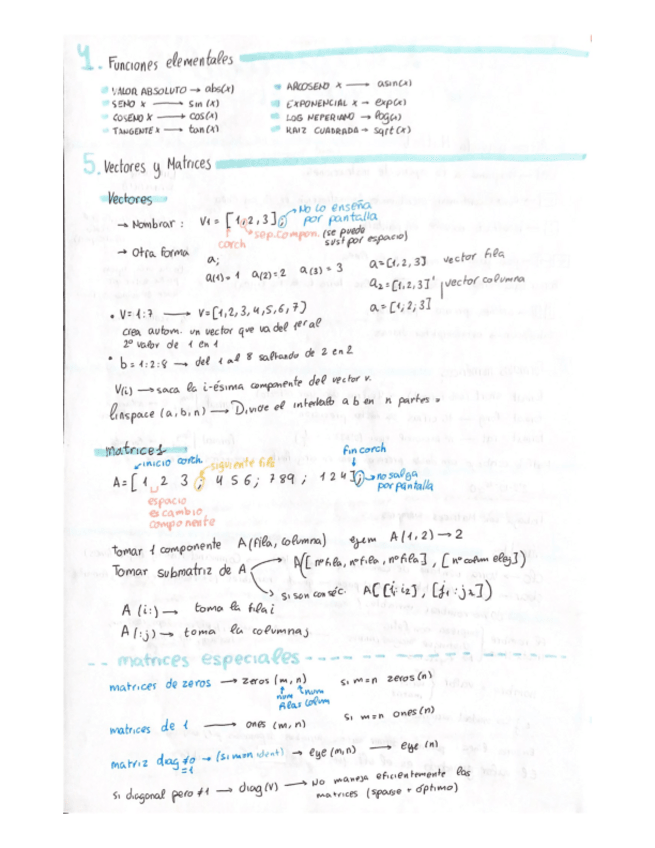 4. Funciones elementales
VALOR ABSOLUTO → abs(x)
SENO X → sin(x)
COSENO X → cos(x)
TANGENTE X → tan(x)
ARCOSENO X → asin(x)
EXPONENCIAL X → exp(x)
LOG NEPERIANO → log(x)
RAIZ CUADRADA → sqrt(x)
5. Vectores y Matrices
Vectores
→ Nombrar: V1 = [1,2,3];
→ No lo enseña
por pantalla
corch
sep. compon. (se puede
sust por espacio)
→ Otra forma
a;
a(1)=1 a(2)=2 a(3)=3
a=[1,2,3] vector fila
a2=[1,2,3]' vector columna
a=[1;2;3]
• V=1:7 → V=[1,2,3,4,5,6,7]
crea autom. un vector que va del 1er al
2º valor de 1 en 1
• b=1:2:8 → del 1 al 8 saltando de 2 en 2
V(i) → saca la i-ésima componente del vector v.
linspace (a,b,n) → Divide el intervalo a b en n partes
matrices
inicio corch.
siguiente fila
fin corch
A=[1 2 3; 4 5 6; 7 8 9; 1 2 4];
→ no salga
por pantalla
espacio
es cambio
componente
Tomar 1 componente A(fila, columna) ejem A(1,2) → 2
Tomar submatriz de A
A([nºfila, nºfila, nºfila], [nº colum eleg])
si son conséc. A([i1:i2], [j1:j2])
A(i:) → toma la fila i
A(:j) → toma la columna j
matrices especiales
matrices de zeros → zeros (m,n) si m=n zeros(n)
num filas
num colum
matrices de 1 → ones (m,n) si m=n ones(n)
matriz diag ≠0 =1 → (si m=n ident) → eye (m,n) → eye (n)
si diagonal pero ≠1 → diag(V) → No maneja eficientemente las
matrices (sparse + óptimo)